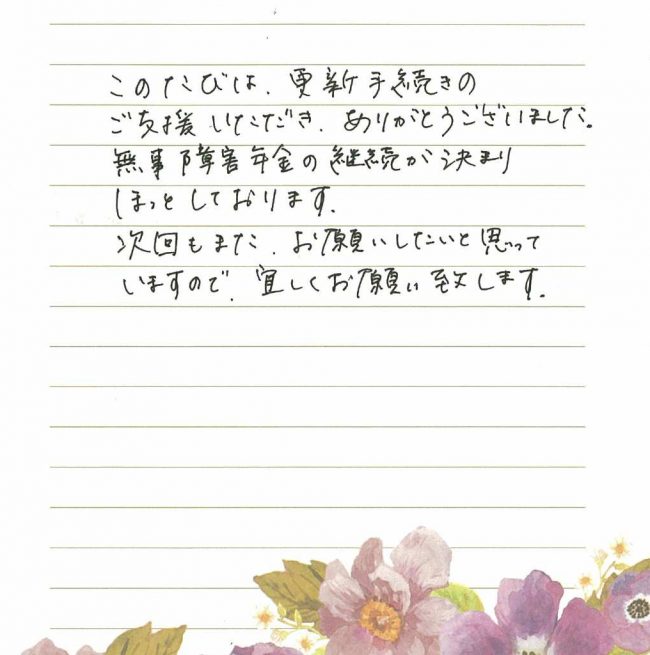 このたびは、更新手続きの
ご支援いただき、ありがとうございました。
無事障害年金の継続が決まり
ほっとしております。
次回もまた、お願いしたいと思って
いますので、宜しくお願い致します。